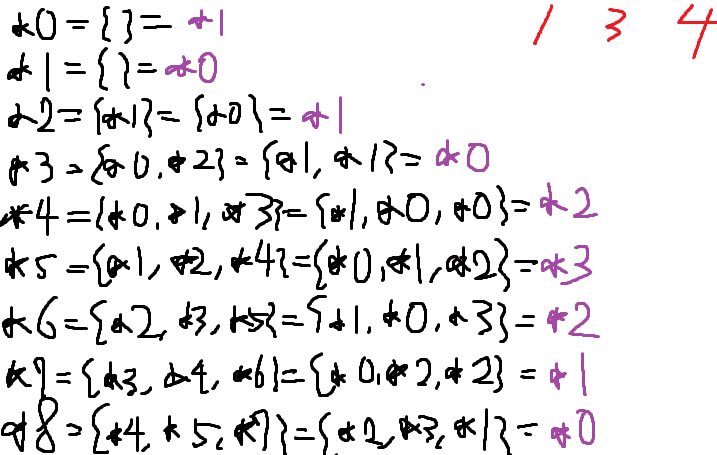 *0 = { } = *1 1 3 4
*1 = { } = *0
*2 = {*1} = {*0} = *1
*3 = {*0, *2} = {*1, *1} = *0
*4 = {*0, *1, *3} = {*1, *0, *0} = *2
*5 = {*1, *2, *4} = {*0, *1, *2} = *3
*6 = {*2, *3, *5} = {*1, *0, *3} = *2
*7 = {*3, *4, *6} = {*0, *2, *2} = *1
*8 = {*4, *5, *7} = {*2, *3, *1} = *0